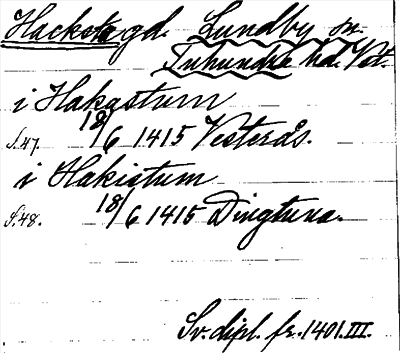 Hacksta gd. Lundby sn.
Tuhundra hd. Vst.
i Hakastum
S.47. 18/6 1415 Vesterås.
i Hakistum
S.48. 18/6 1415 Dingtuna.
Sv. dipl. fr. 1401. III.